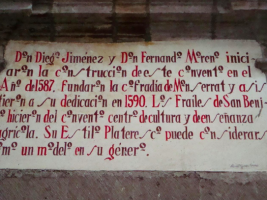 Don Diego Jiménez y Don Fernando Moreno inici
aron la construccion de este convento en el
Año de 1587. Fundaron la cofradía de Monserrat y asis
tieron a su dedicacion en 1590. Los Frailes de San Beni
to hicieron del convento centro de cultura y de enseñanza
agrícola. Su Estilo Plateresco puede considerar
como un modelo en su género.